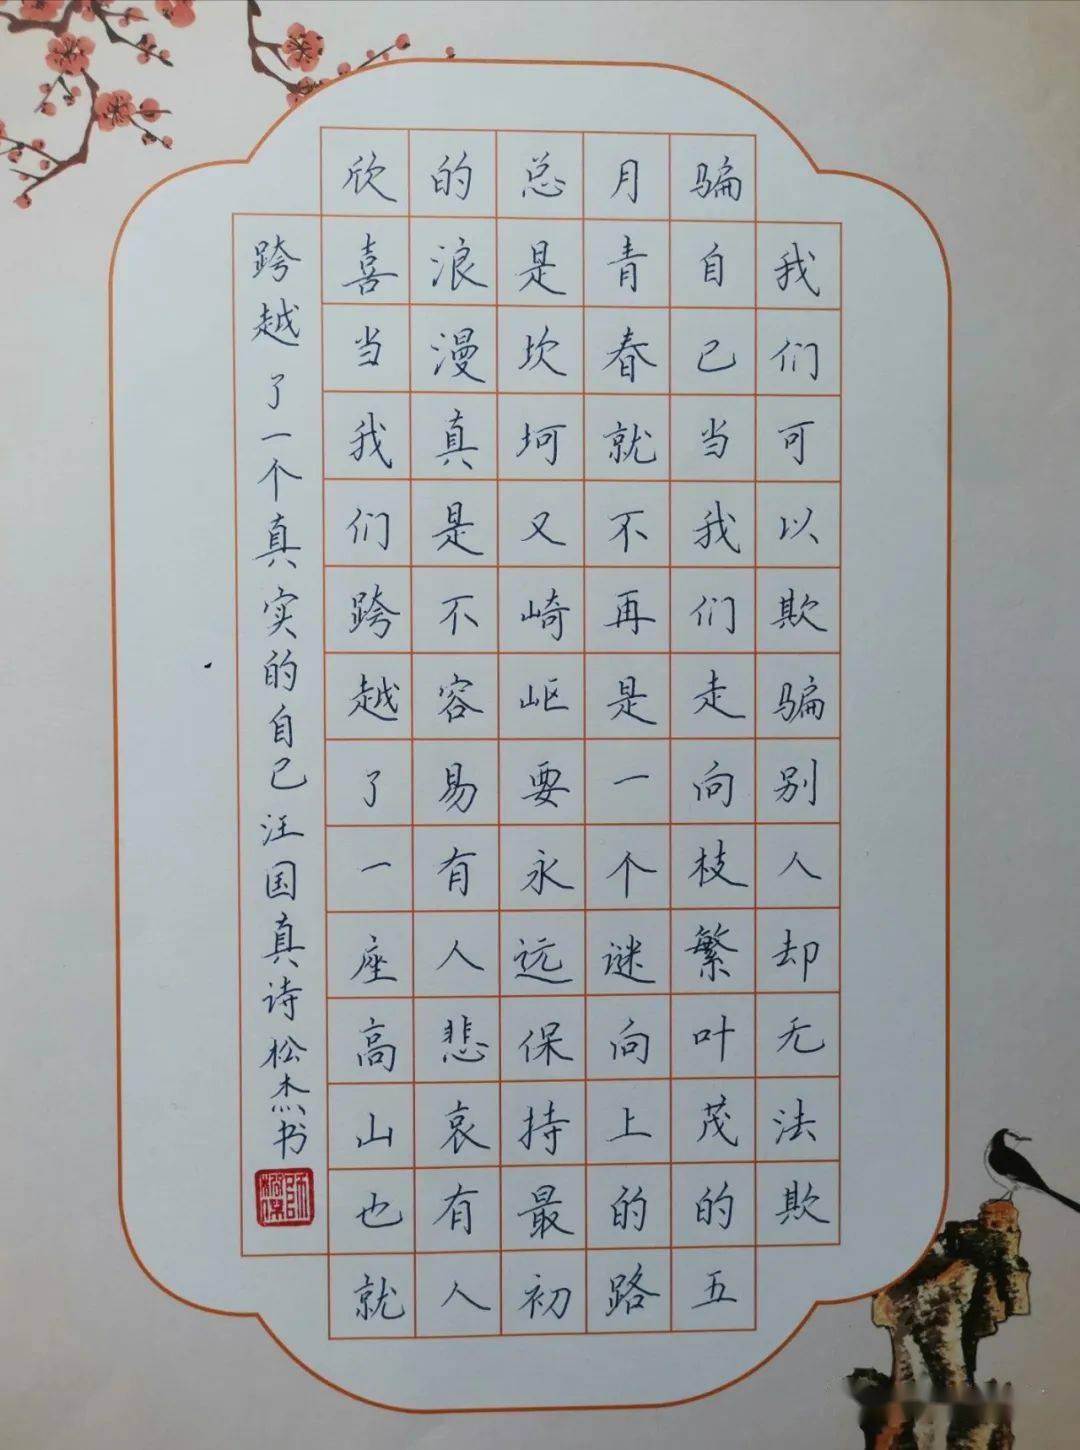 我们可以欺骗别人却无法欺
骗自己当我们走向枝繁叶茂的五
月青春就不再是一个谜向上的路
总是坎坷又崎岖要永远保持最初
的浪漫真是不容易有人悲哀有人
欣喜当我们跨越了一座高山也就
跨越了一个真实的自己汪国真诗松杰书